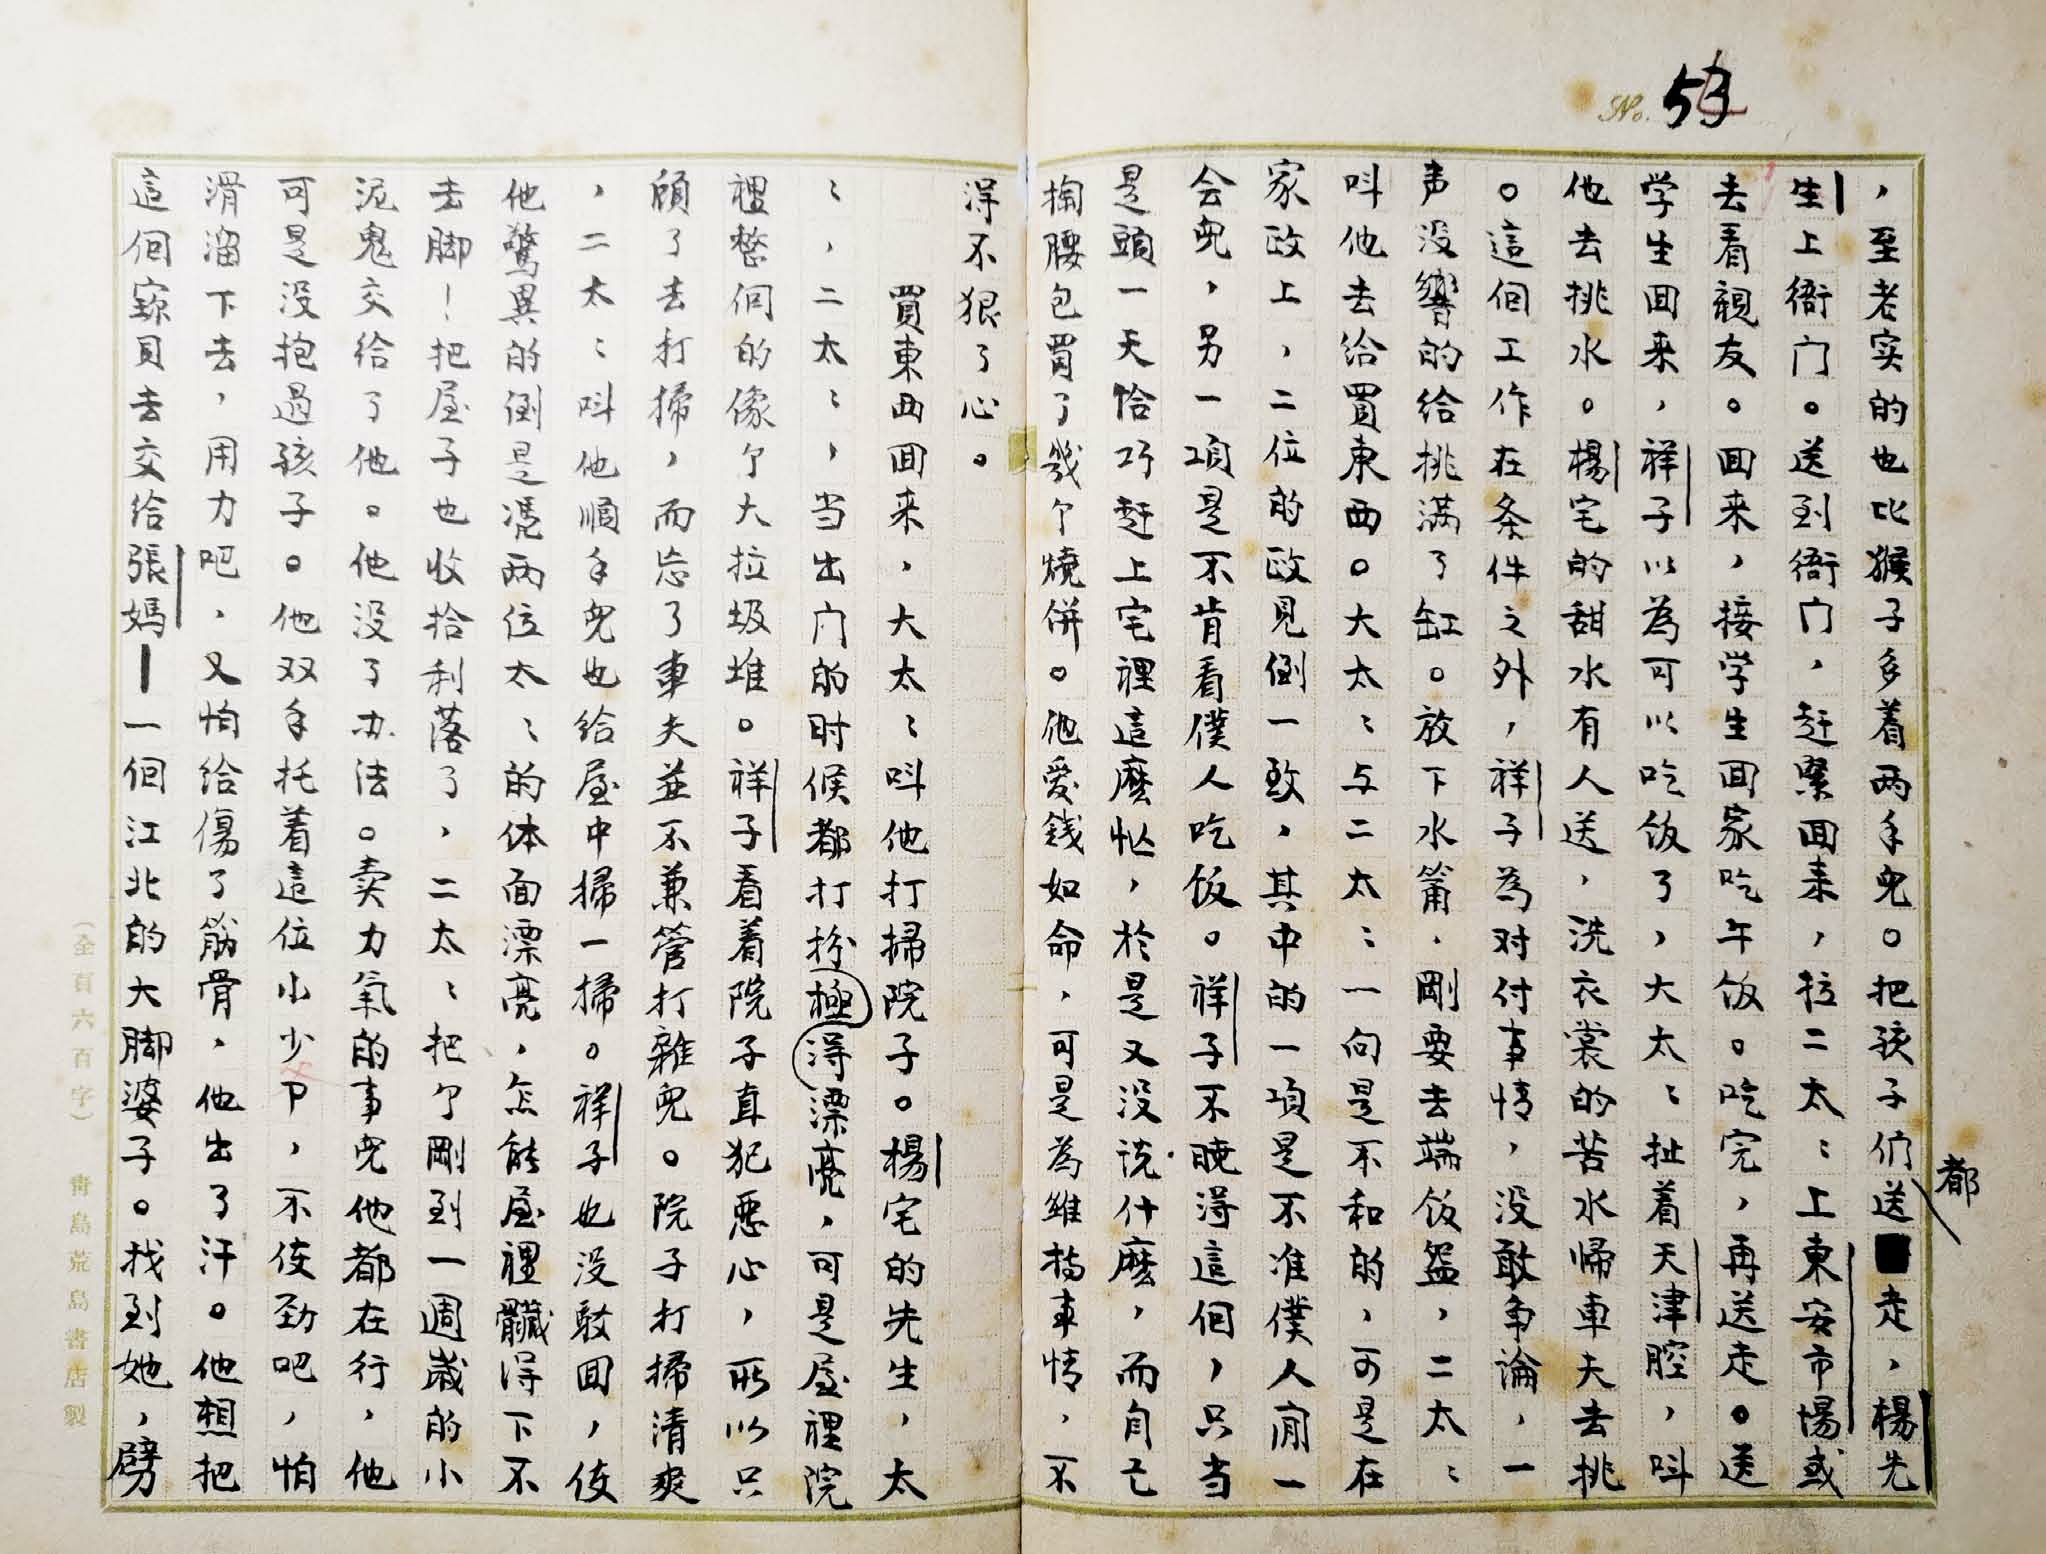 No. 53
，至老实的也比猴子多着两手兒。把孩子们送都走，楊先
生上衙门。送到衙门，赶緊回来，拉二太〻上東安市場或
去看親友。回来，接学生回家吃午饭。吃完，再送走。送
学生回来，祥子以為可以吃饭了，大太〻扯着天津腔，叫
他去挑水。楊宅的甜水有人送，洗衣裳的苦水帰車夫去挑
。這個工作在条件之外，祥子為对付事情，没敢争論，一
声没響的给挑满了缸。放下水筲，剛要去端饭盔，二太〻
叫他去给買東西。大太〻与二太〻一向是不和的，可是在
家政上，二位的政見倒一致，其中的一項是不准僕人閒一
会兒，另一項是不肯看僕人吃饭。祥子不曉得這個，只当
是頭一天恰巧赶上宅裡這麽忙，於是又没说什麽，而自己
掏腰包買了幾个燒餅。他愛錢如命，可是為維持事情，不
得不狠了心。
買東西回来，大太〻叫他打掃院子。楊宅的先生，太
〻，二太〻，当出门的时候都打扮極得漂亮，可是屋裡院
裡整個的像个大拉圾堆。祥子看着院子直犯惡心，所以只
顧了去打掃，而忘了車夫並不兼管打雜兒。院子打掃清爽
，二太〻叫他順手兒也给屋中掃一掃。祥子也没駁回，使
他驚異的倒是凭兩位太〻的体面漂亮，怎能屋裡髒得下不
去脚！把屋子也收拾利落了，二太〻把个剛到一週歲的小
泥鬼交给了他。他没了办法。卖力氣的事兒他都在行，他
可是没抱過孩子。他双手托着這位小少爷，不使劲吧，怕
滑溜下去，用力吧，又怕给傷了筋骨，他出了汗。他想把
這個寶貝去交给張媽——一個江北的大脚婆子。找到她，劈
（全頁六百字） 青島荒島書店製